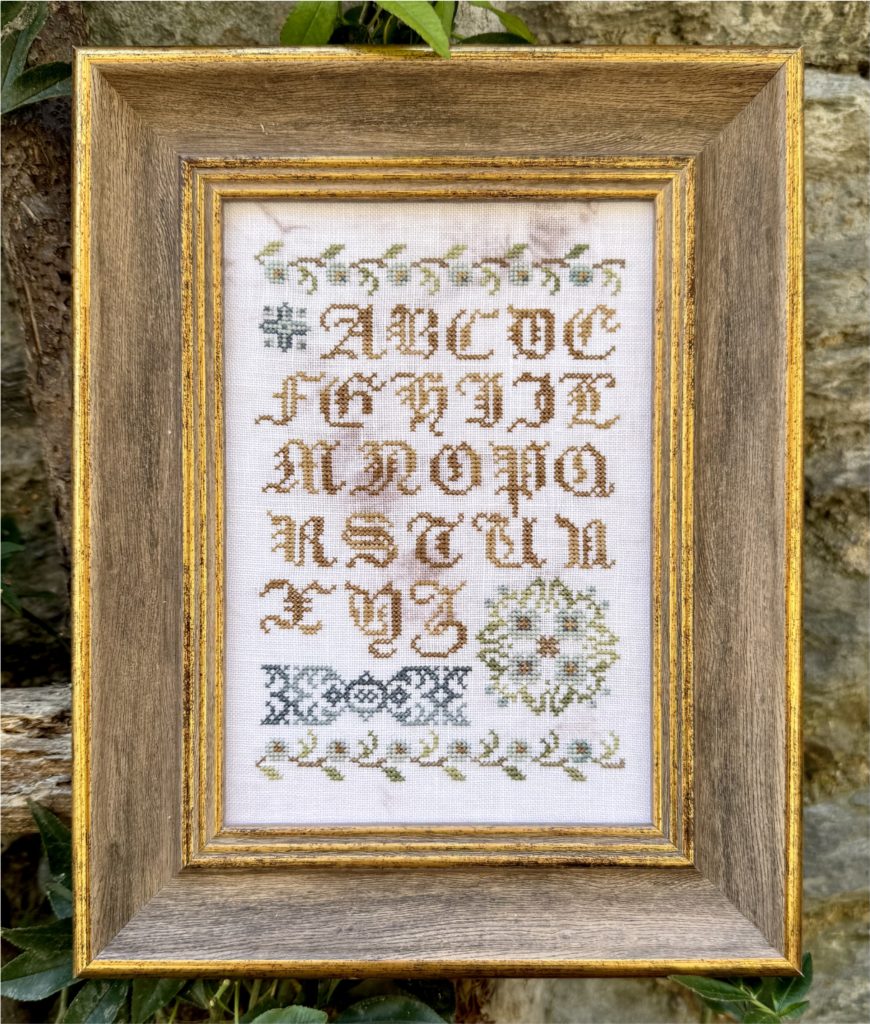 A B C D E
F G H I K L
M N O P Q
R S T U
X Y Z